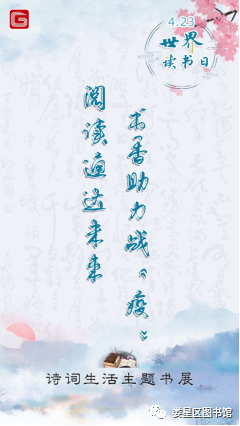 4.23
世界
读书日
阅读通达未来
书香助力战“疫”
诗词生活主题书展
娄星区图书馆